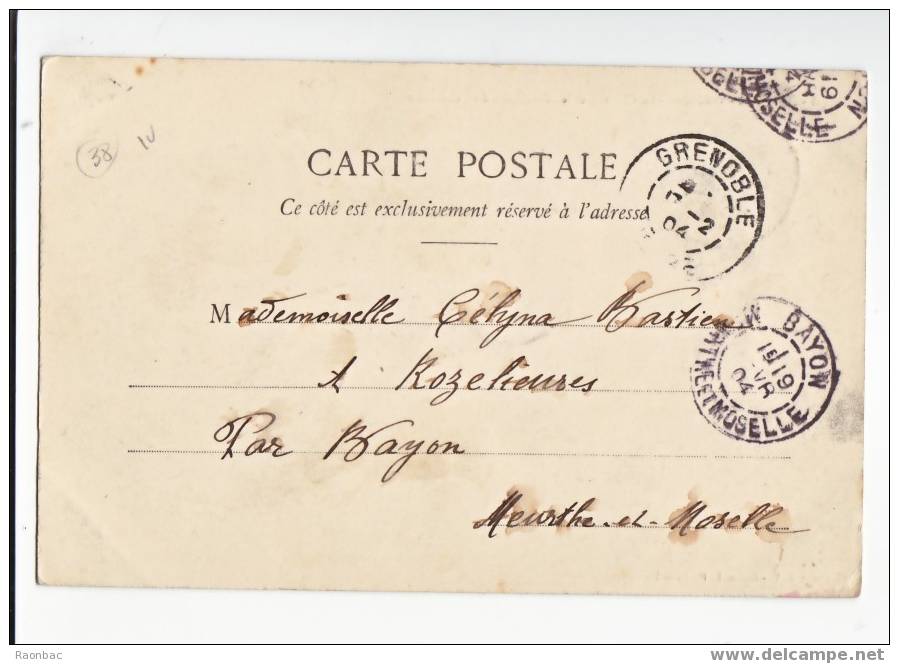 ON
19
SELLE
MOSELLE
38
CARTE POSTALE
Ce côté est exclusivement réservé à l'adresse
GRENOBLE
-2
04
Mademoiselle Célyna Bastien
A Rozelieures
Par Bayon
Meurthe-et-Moselle
BAYON
19
AVR
04
MEURTHE ET MOSELLE
Raonbac
www.delcampe.net